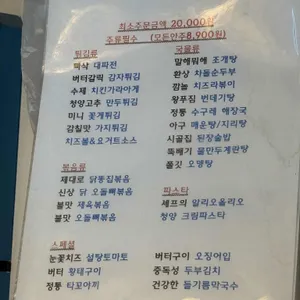 최소주문금액 20,000원
주류필수 (모든안주8,900원)
튀김류
바삭 대파전
버터갈릭 감자튀김
수제 치킨가라아게
청양고추 만두튀김
미니 꽃게튀김
감칠맛 가지튀김
치즈볼&요거트소스
국물류
말해뭐해 조개탕
환상 차돌순두부
깜놀 라볶이
왕푸짐 번데기탕
정통 수구레 해장국
아구 매운탕/지리탕
시골집 된장술밥
뚝배기 물만두계란탕
쫄깃 오뎅탕
볶음류
제대로 닭똥집볶음
신상 닭 오돌뼈볶음
불맛 제육볶음
불맛 오돌뼈볶음
파스타
셰프의 알리오올리오
청양 크림파스타
스페셜
눈꽃치즈 설탕토마토
버터 황태구이
정통 타꼬야끼
버터구이 오징어입
중독성 두부김치
건강한 들기름막국수